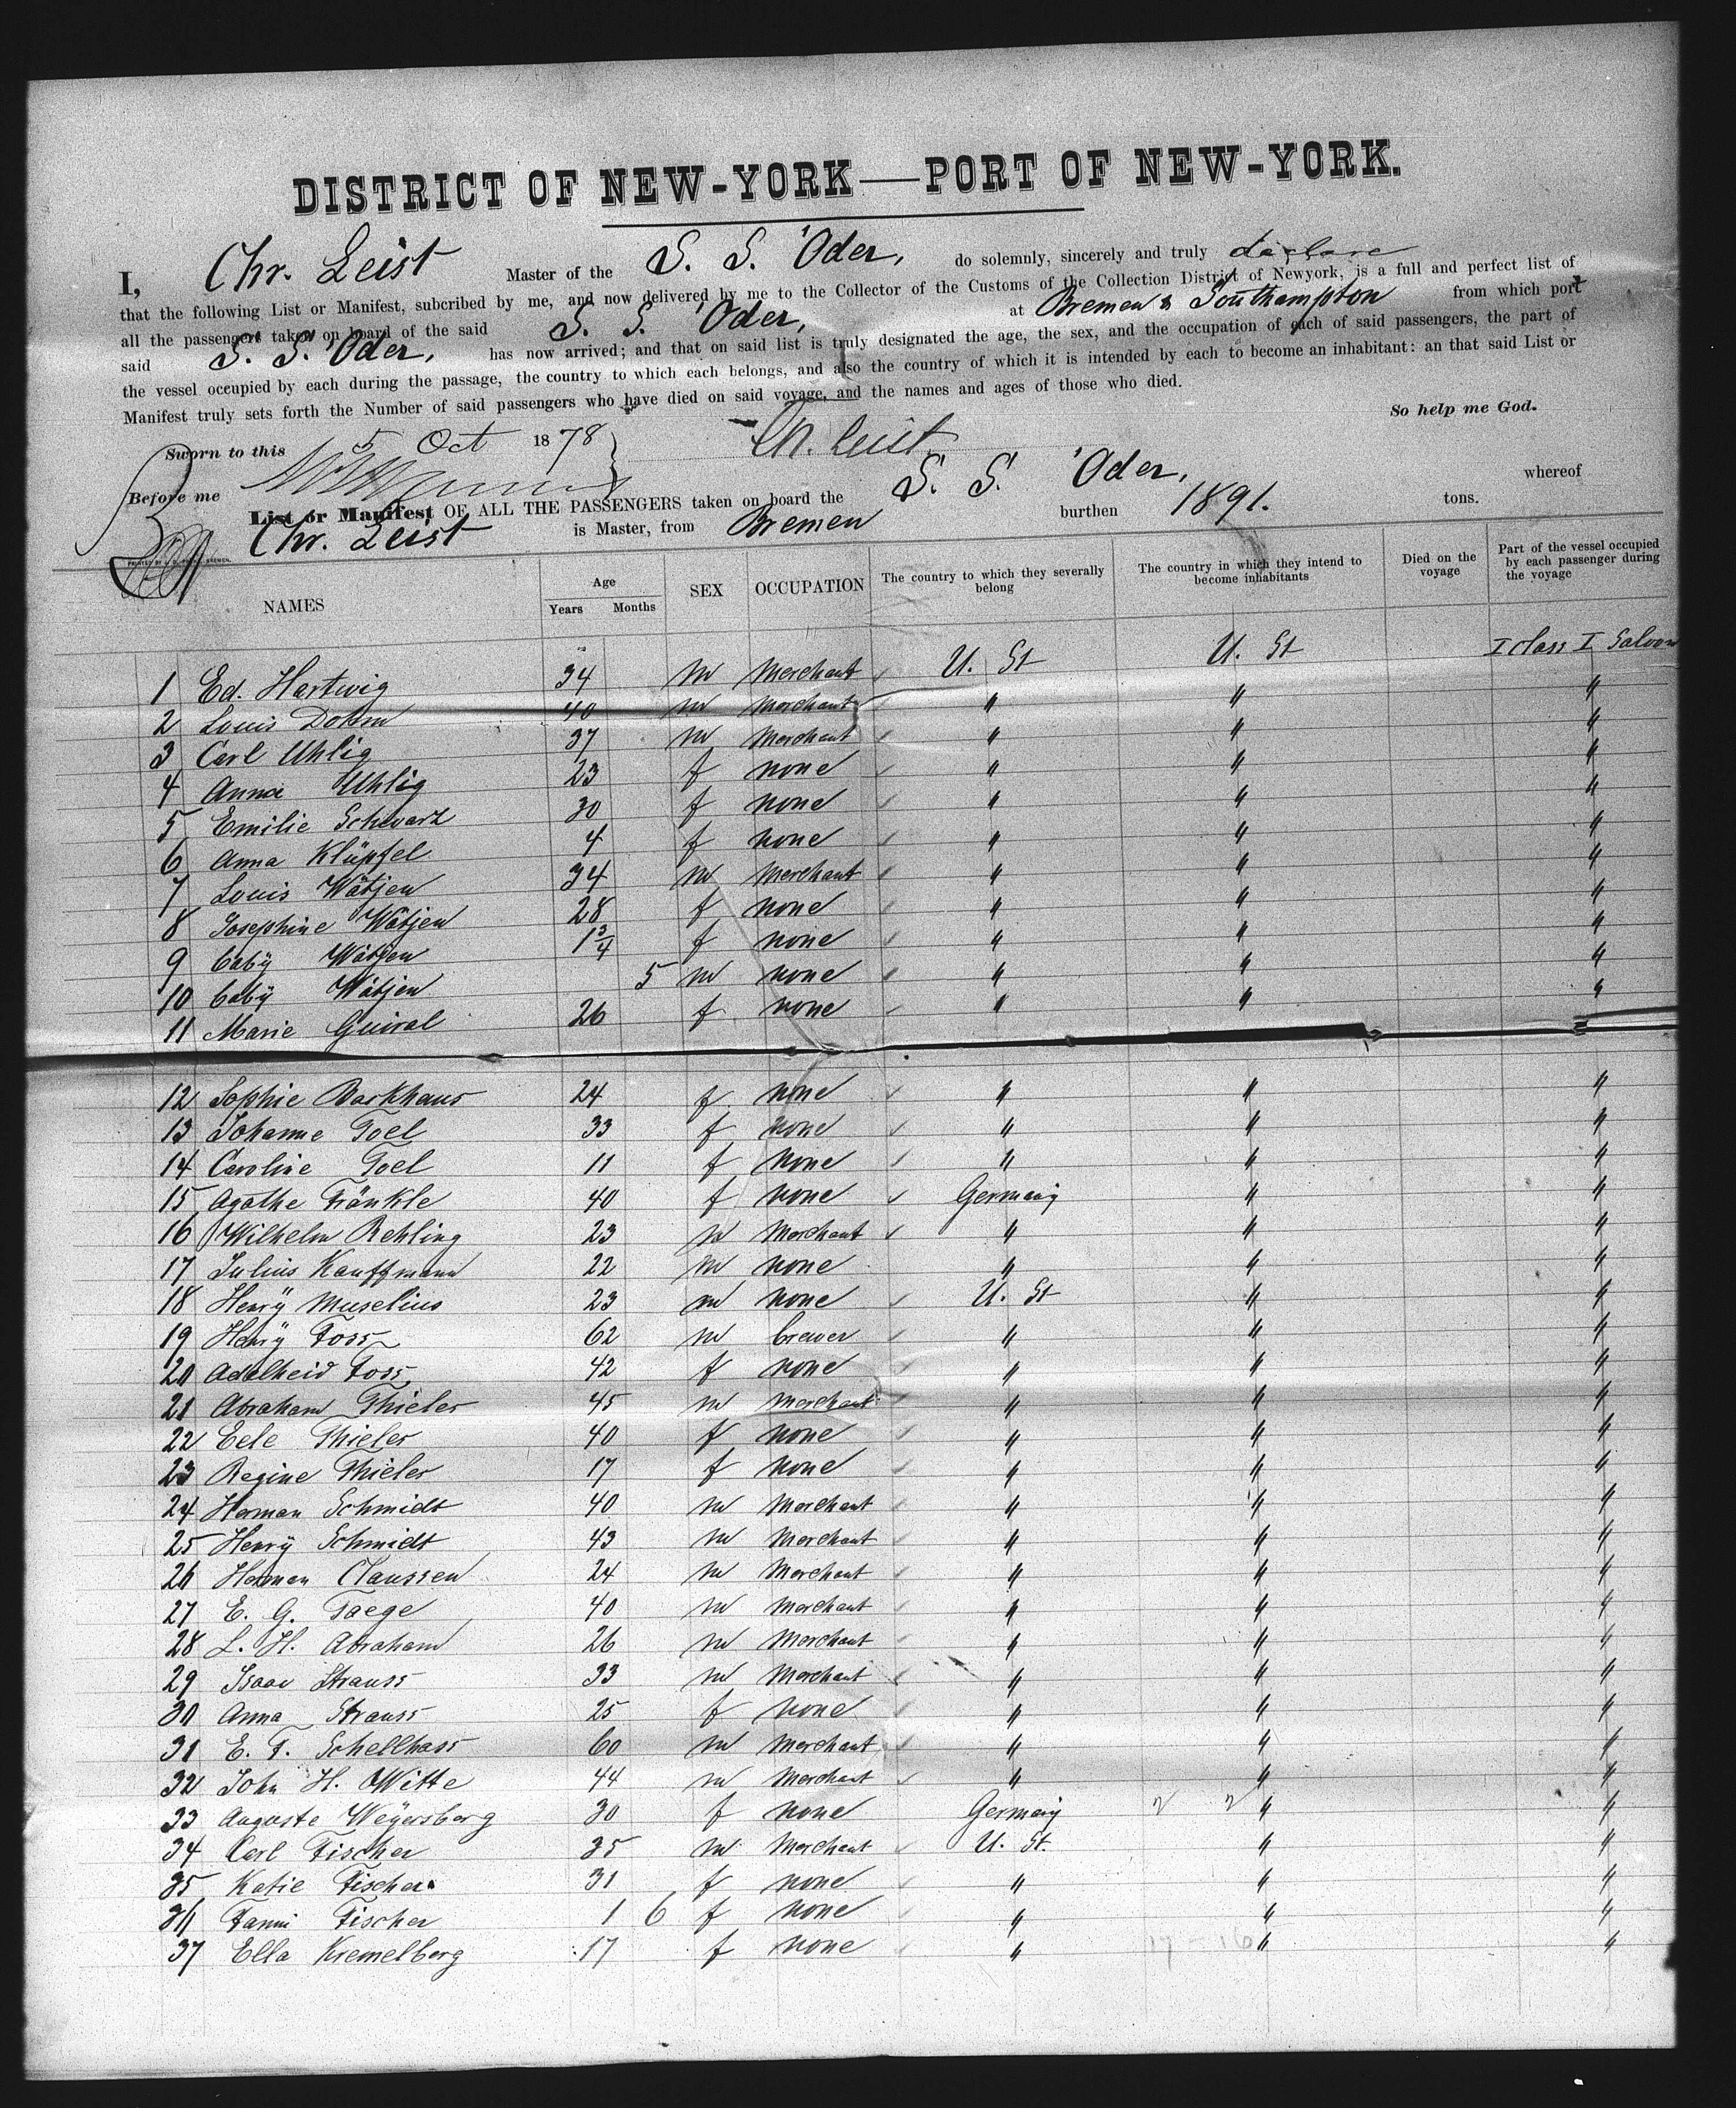 DISTRICT OF NEW-YORK—PORT OF NEW-YORK.
I, Chr. Leist Master of the S. S. "Oder, do solemnly, sincerely and truly declare
that the following List or Manifest, subcribed by me, and now delivered by me to the Collector of the Customs of the Collection District of Newyork, is a full and perfect list of
all the passengers taken on board of the said S. S. "Oder, at Bremen & Southampton from which port
said S. S. "Oder, has now arrived; and that on said list is truly designated the age, the sex, and the occupation of each of said passengers, the part of
the vessel occupied by each during the passage, the country to which each belongs, and also the country of which it is intended by each to become an inhabitant: an that said List or
Manifest truly sets forth the Number of said passengers who have died on said voyage, and the names and ages of those who died.
So help me God.
Sworn to this 5 Oct 1878 Ch. Leist
Before me
List or Manifest OF ALL THE PASSENGERS taken on board the S. S. "Oder, whereof
Chr. Leist is Master, from Bremen burthen 1891. tons.
NAMES Age Years Months SEX OCCUPATION The country to which they severally belong The country in which they intend to become inhabitants Died on the voyage Part of the vessel occupied by each passenger during the voyage
1 Ed. Hartwig 34 m Merchant U. St U. St I class I Saloon
2 Louis Dohm 40 m Merchant " " "
3 Carl Uhlig 37 m Merchant " " "
4 Anna Uhlig 23 f none " " "
5 Emilie Schwarz 30 f none " " "
6 Anna Klüpfel 4 f none " " "
7 Louis Wätjen 34 m Merchant " " "
8 Josephine Wätjen 28 f none " " "
9 baby Wätjen 1 3/4 f none " " "
10 baby Wätjen 5 m none " " "
11 Marie Guiral 26 f none " " "
12 Sophie Barkhaus 24 f none " " "
13 Johanne Toel 33 f none " " "
14 Caroline Toel 11 f none " " "
15 Agathe Fränkle 40 f none Germany " "
16 Wilhelm Rehling 23 m Merchant " " "
17 Julius Kauffmann 22 m none " " "
18 Henry Muselius 23 m none U. St " "
19 Henry Foss 62 m brewer " " "
20 Adelheid Foss 42 f none " " "
21 Abraham Thieler 45 m Merchant " " "
22 Eele Thieler 40 f none " " "
23 Regine Thieler 17 f none " " "
24 Herman Schmidt 40 m Merchant " " "
25 Henry Schmidt 43 m Merchant " " "
26 Herman Claussen 24 m Merchant " " "
27 E. G. Taege 40 m Merchant " " "
28 L. H. Abraham 26 m Merchant " " "
29 Isaac Strauss 33 m Merchant " " "
30 Anna Strauss 25 f none " " "
31 E. F. Schellhass 60 m Merchant " " "
32 John H. Witte 44 m Merchant " " "
33 Auguste Weyersberg 30 f none Germany " "
34 Carl Fischer 35 m Merchant U. St. " "
35 Katie Fischer 31 f none " " "
36 Fanni Fischer 1 6 f none " " "
37 Ella Kremelberg 17 f none " " "